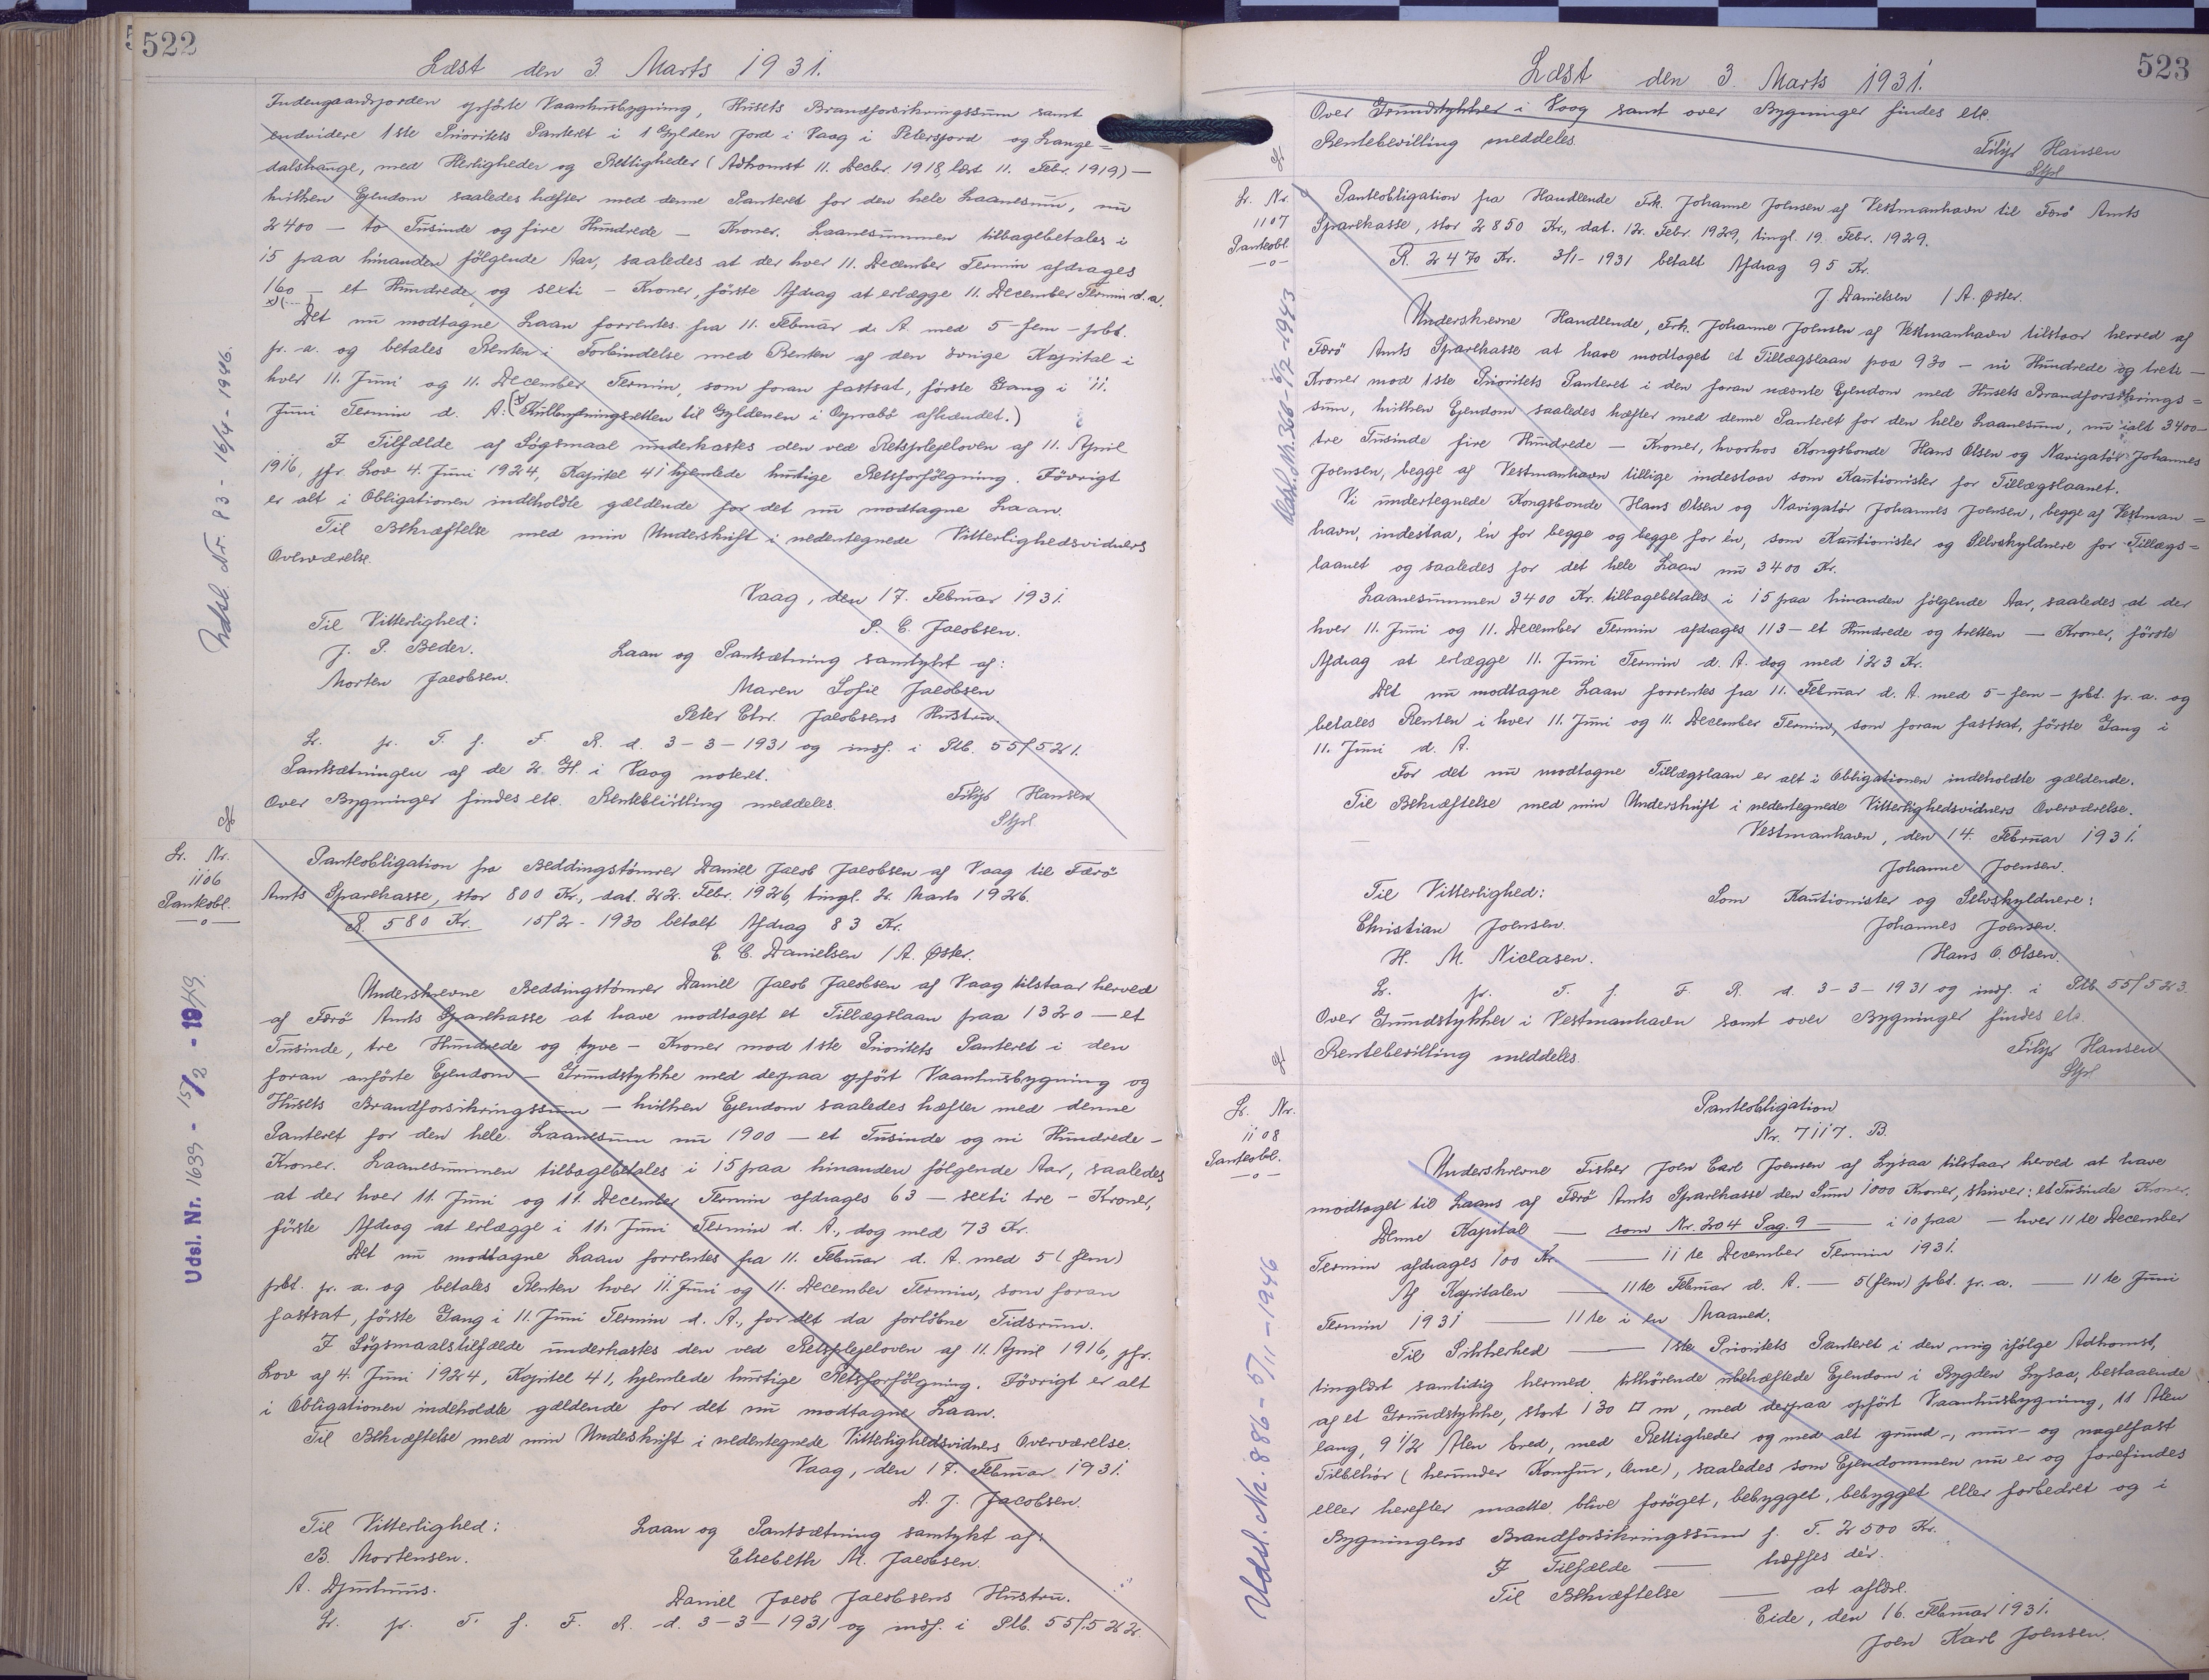 522
Læst den 3. Marts 1931.
Indengaardsjorden opførte Vaanhusbygning, Husets Brandforsikringssum samt
endvidere 1ste Prioritets Panteret i 1 Gylden Jord i Vaag i Petersjord og Lange=
dalshauge, med Herligheder og Rettigheder (Adkomst 11. Decbr. 1918, læst 11. Febr. 1919) —
hvilken Ejendom saaledes hæfter med denne Panteret for den hele Laanesum, nu
2400 — to Tusinde og fire Hundrede — Kroner. Laanesummen tilbagebetales i
15 paa hinanden følgende Aar, saaledes at der hver 11. December Termin afdrages
160 — et Hundrede og sexti — Kroner, første Afdrag at erlægge 11. December Termin d. a.
x) (— )
Det nu modtagne Laan forrentes fra 11. Februar d. A. med 5 - fem - pbt.
pr. a. og betales Renten i Forbindelse med Renten af den øvrige Kapital i
hver 11. Juni og 11. December Termin, som foran fastsat, første Gang i 11.
Juni Termin d. A. (x Kulbrydningsretten til Gyldenen i Oprabø afhændet.)
I Tilfælde af Søgsmaal underkastes den ved Retsplejeloven af 11. April
1916, jfr. Lov 4. Juni 1924, Kapitel 41 hjemlede hurtige Retsforfølgning. Iøvrigt
er alt i Obligationen indeholdte gældende for det nu modtagne Laan.
Til Bekræftelse med min Underskrift i nedentegnede Vitterlighedsvidners
Overværelse.
Vaag, den 17. Februar 1931.
Til Vitterlighed: P. C. Jacobsen.
J. P. Beder. Laan og Pantsætning samtykt af:
Morten Jacobsen. Maren Sofie Jacobsen
Peter Chr. Jacobsens Hustru.
Lr. pr. T. f. F. R. d. 3-3-1931 og indf. i Ptb. 55/521.
Pantsætningen af de 2 Gl. i Vaag noteret.
Over Bygninger findes etc. Rentebevilling meddeles. Filip Hansen
Stpl
Udsl. Nr. 83 - 16/4 - 1946.
Lr. Nr.
1106
Panteobl.
—o—
Panteobligation fra Beddingstømrer Daniel Jacob Jacobsen af Vaag til Færø
Amts Sparekasse, stor 800 Kr., dat. 22. Febr. 1926, tingl. 2. Marts 1926.
R. 580 Kr. 15/2 - 1930 betalt Afdrag 83 Kr.
C. C. Danielsen / A. Øster.
Underskrevne Beddingstømrer Daniel Jacob Jacobsen af Vaag tilstaar herved
af Færø Amts Sparekasse at have modtaget et Tillægslaan paa 1320 — et
Tusinde, tre Hundrede og tyve — Kroner mod 1ste Prioritets Panteret i den
foran anførte Ejendom — Grundstykke med derpaa opført Vaanhusbygning og
Husets Brandforsikringssum — hvilken Ejendom saaledes hæfter med denne
Panteret for den hele Laanesum nu 1900 — et Tusinde og ni Hundrede —
Kroner. Laanesummen tilbagebetales i 15 paa hinanden følgende Aar, saaledes
at der hver 11. Juni og 11. December Termin afdrages 63 — sexti tre — Kroner,
første Afdrag at erlægge i 11. Juni Termin d. A., dog med 73 Kr.
Det nu modtagne Laan forrentes fra 11. Februar d. A. med 5 (fem)
pbt. pr. a. og betales Renten hver 11. Juni og 11. December Termin, som foran
fastsat, første Gang i 11. Juni Termin d. A., for det da forløbne Tidsrum.
I Søgsmaalstilfælde underkastes den ved Retsplejeloven af 11. April 1916, jfr.
Lov af 4. Juni 1924, Kapitel 41, hjemlede hurtige Retsforfølgning. Iøvrigt er alt
i Obligationen indeholdte gældende for det nu modtagne Laan.
Til Bekræftelse med min Underskrift i nedentegnede Vitterlighedsvidners Overværelse.
Vaag, den 17. Februar 1931.
D. J. Jacobsen.
Til Vitterlighed: Laan og Pantsætning samtykt af:
B. Mortensen. Elsebeth M. Jacobsen.
A. Djurhuus. Daniel Jacob Jacobsens Hustru.
Lr. pr. T. f. F. R. d. 3-3-1931 og indf. i Ptb. 55/522.
Udsl. Nr. 1639 - 15/2 - 1949.
523
Læst den 3. Marts 1931.
Over Grundstykker i Vaag samt over Bygninger findes etc.
Rentebevilling meddeles. Filip Hansen
Stpl
Lr. Nr.
1107
Panteobl.
—o—
Panteobligation fra Handlende Frk. Johanne Joensen af Vestmanhavn til Færø Amts
Sparekasse, stor 2850 Kr., dat. 12. Febr. 1929, tingl. 19. Febr. 1929.
R. 2470 Kr. 3/1 - 1931 betalt Afdrag 95 Kr.
J. Danielsen / A. Øster.
Underskrevne Handlende, Frk. Johanne Joensen af Vestmanhavn tilstaar herved af
Færø Amts Sparekasse at have modtaget et Tillægslaan paa 930 — ni Hundrede og treti —
Kroner mod 1ste Prioritets Panteret i den foran nævnte Ejendom med Husets Brandforsikrings=
sum, hvilken Ejendom saaledes hæfter med denne Panteret for den hele Laanesum, nu ialt 3400 —
tre Tusinde fire Hundrede — Kroner, hvorhos Kongsbonde Hans Olsen og Navigatør Johannes
Joensen, begge af Vestmanhavn tillige indestaar som Kautionister for Tillægslaanet.
Vi undertegnede Kongsbonde Hans Olsen og Navigatør Johannes Joensen, begge af Vestman=
havn, indestaa, én for begge og begge for én, som Kautionister og Selvskyldnere for Tillægs=
laanet og saaledes for det hele Laan nu 3400 Kr.
Laanesummen 3400 Kr. tilbagebetales i 15 paa hinanden følgende Aar, saaledes at der
hver 11. Juni og 11. December Termin afdrages 113 — et Hundrede og tretten — Kroner, første
Afdrag at erlægge 11. Juni Termin d. A. dog med 123 Kr.
Det nu modtagne Laan forrentes fra 11. Februar d. A. med 5 - fem - pbt. pr. a. og
betales Renten i hver 11. Juni og 11. December Termin, som foran fastsat, første Gang i
11. Juni d. A.
For det nu modtagne Tillægslaan er alt i Obligationen indeholdte gældende.
Til Bekræftelse med min Underskrift i nedentegnede Vitterlighedsvidners Overværelse.
Vestmanhavn, den 14. Februar 1931.
Johanne Joensen.
Til Vitterlighed: Som Kautionister og Selvskyldnere:
Christian Joensen. Johannes Joensen.
H. M. Niclasen. Hans O. Olsen.
Lr. pr. T. f. F. R. d. 3-3-1931 og indf. i Ptb. 55/523.
Over Grundstykker i Vestmanhavn samt over Bygninger findes etc.
Rentebevilling meddeles. Filip Hansen
Stpl
Udsl. Nr. 366 - 6/2 - 1943
Lr. Nr.
1108
Panteobl.
—o—
Panteobligation
Nr. 7117. B.
Underskrevne Fisker Joen Carl Joensen af Lysaa tilstaar herved at have
modtaget til Laans af Færø Amts Sparekasse den Sum 1000 Kroner, skriver: et Tusinde Kroner.
Denne Kapital — som Nr. 204 Pag. 9 — i 10 paa — hver 11te December
Termin afdrages 100 Kr. — 11te December Termin 1931.
Af Kapitalen — 11te Februar d. A. — 5 (fem) pbt. pr. a. — 11te Juni
Termin 1931 — 11te i en Maaned.
Til Sikkerhed — 1ste Prioritets Panteret i den mig ifølge Adkomst,
tinglæst samtidig hermed tilhørende ubehæftede Ejendom i Bygden Lysaa, bestaaende
af et Grundstykke, stort 130 □ m, med derpaa opført Vaanhusbygning, 11 Alen
lang, 9 1/2 Alen bred, med Rettigheder og med alt grund-, mur- og nagelfast
Tilbehør (herunder Komfur, Ovne), saaledes som Ejendommen nu er og forefindes
eller herefter maatte blive forøget, bebygget, bebygget eller forbedret og i
Bygningens Brandforsikringssum f. T. 2500 Kr.
I Tilfælde — hæftes dér.
Til Bekræftelse — at aflæsl.
Eide, den 16. Februar 1931.
Joen Karl Joensen.
Udsl. Nr. 886 - 5/11 - 1946